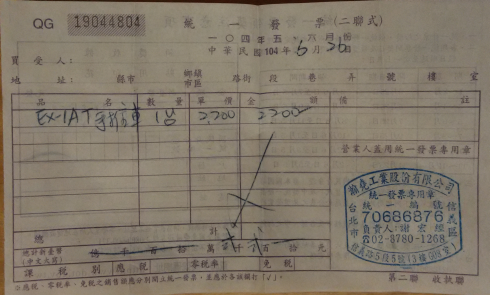 QG 19044804 統一發票(二聯式)
一〇四年五、六月份
中華民國104年6月26日
買受人:
地址: 縣市 鄉鎮市區 路街 段 巷 弄 號 樓 室
品名 數量 單價 金額 備註
EX-1AT 1台 2,200 2200
營業人蓋用統一發票專用章
工業股份有限公司
統一發票專用章
統一編號
70686876
負責人:謝宏
☎02-8780-1268
台北市信義區
信義路5段5號
總計
總計新臺幣
(中文大寫)
億 千 百 拾 萬 貳 仟 貳 百 拾 元
課稅別 應稅 零稅率 免稅
※應稅、零稅率、免稅之銷售額應分別開立統一發票,並應於各該欄打「✓」。
第二聯 收執聯